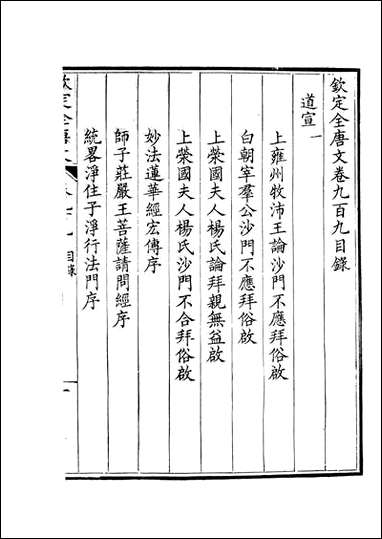 欽定全唐文卷九百九目錄
道宣一
上雍州牧沛王論沙門不應拜俗啟
白朝宰羣公沙門不應拜俗啟
上榮國夫人楊氏論拜親無益啟
上榮國夫人楊氏沙門不合拜俗啟
妙法蓮華經宏傳序
師子莊嚴王菩薩請問經序
統畧淨住子淨行法門序
目錄